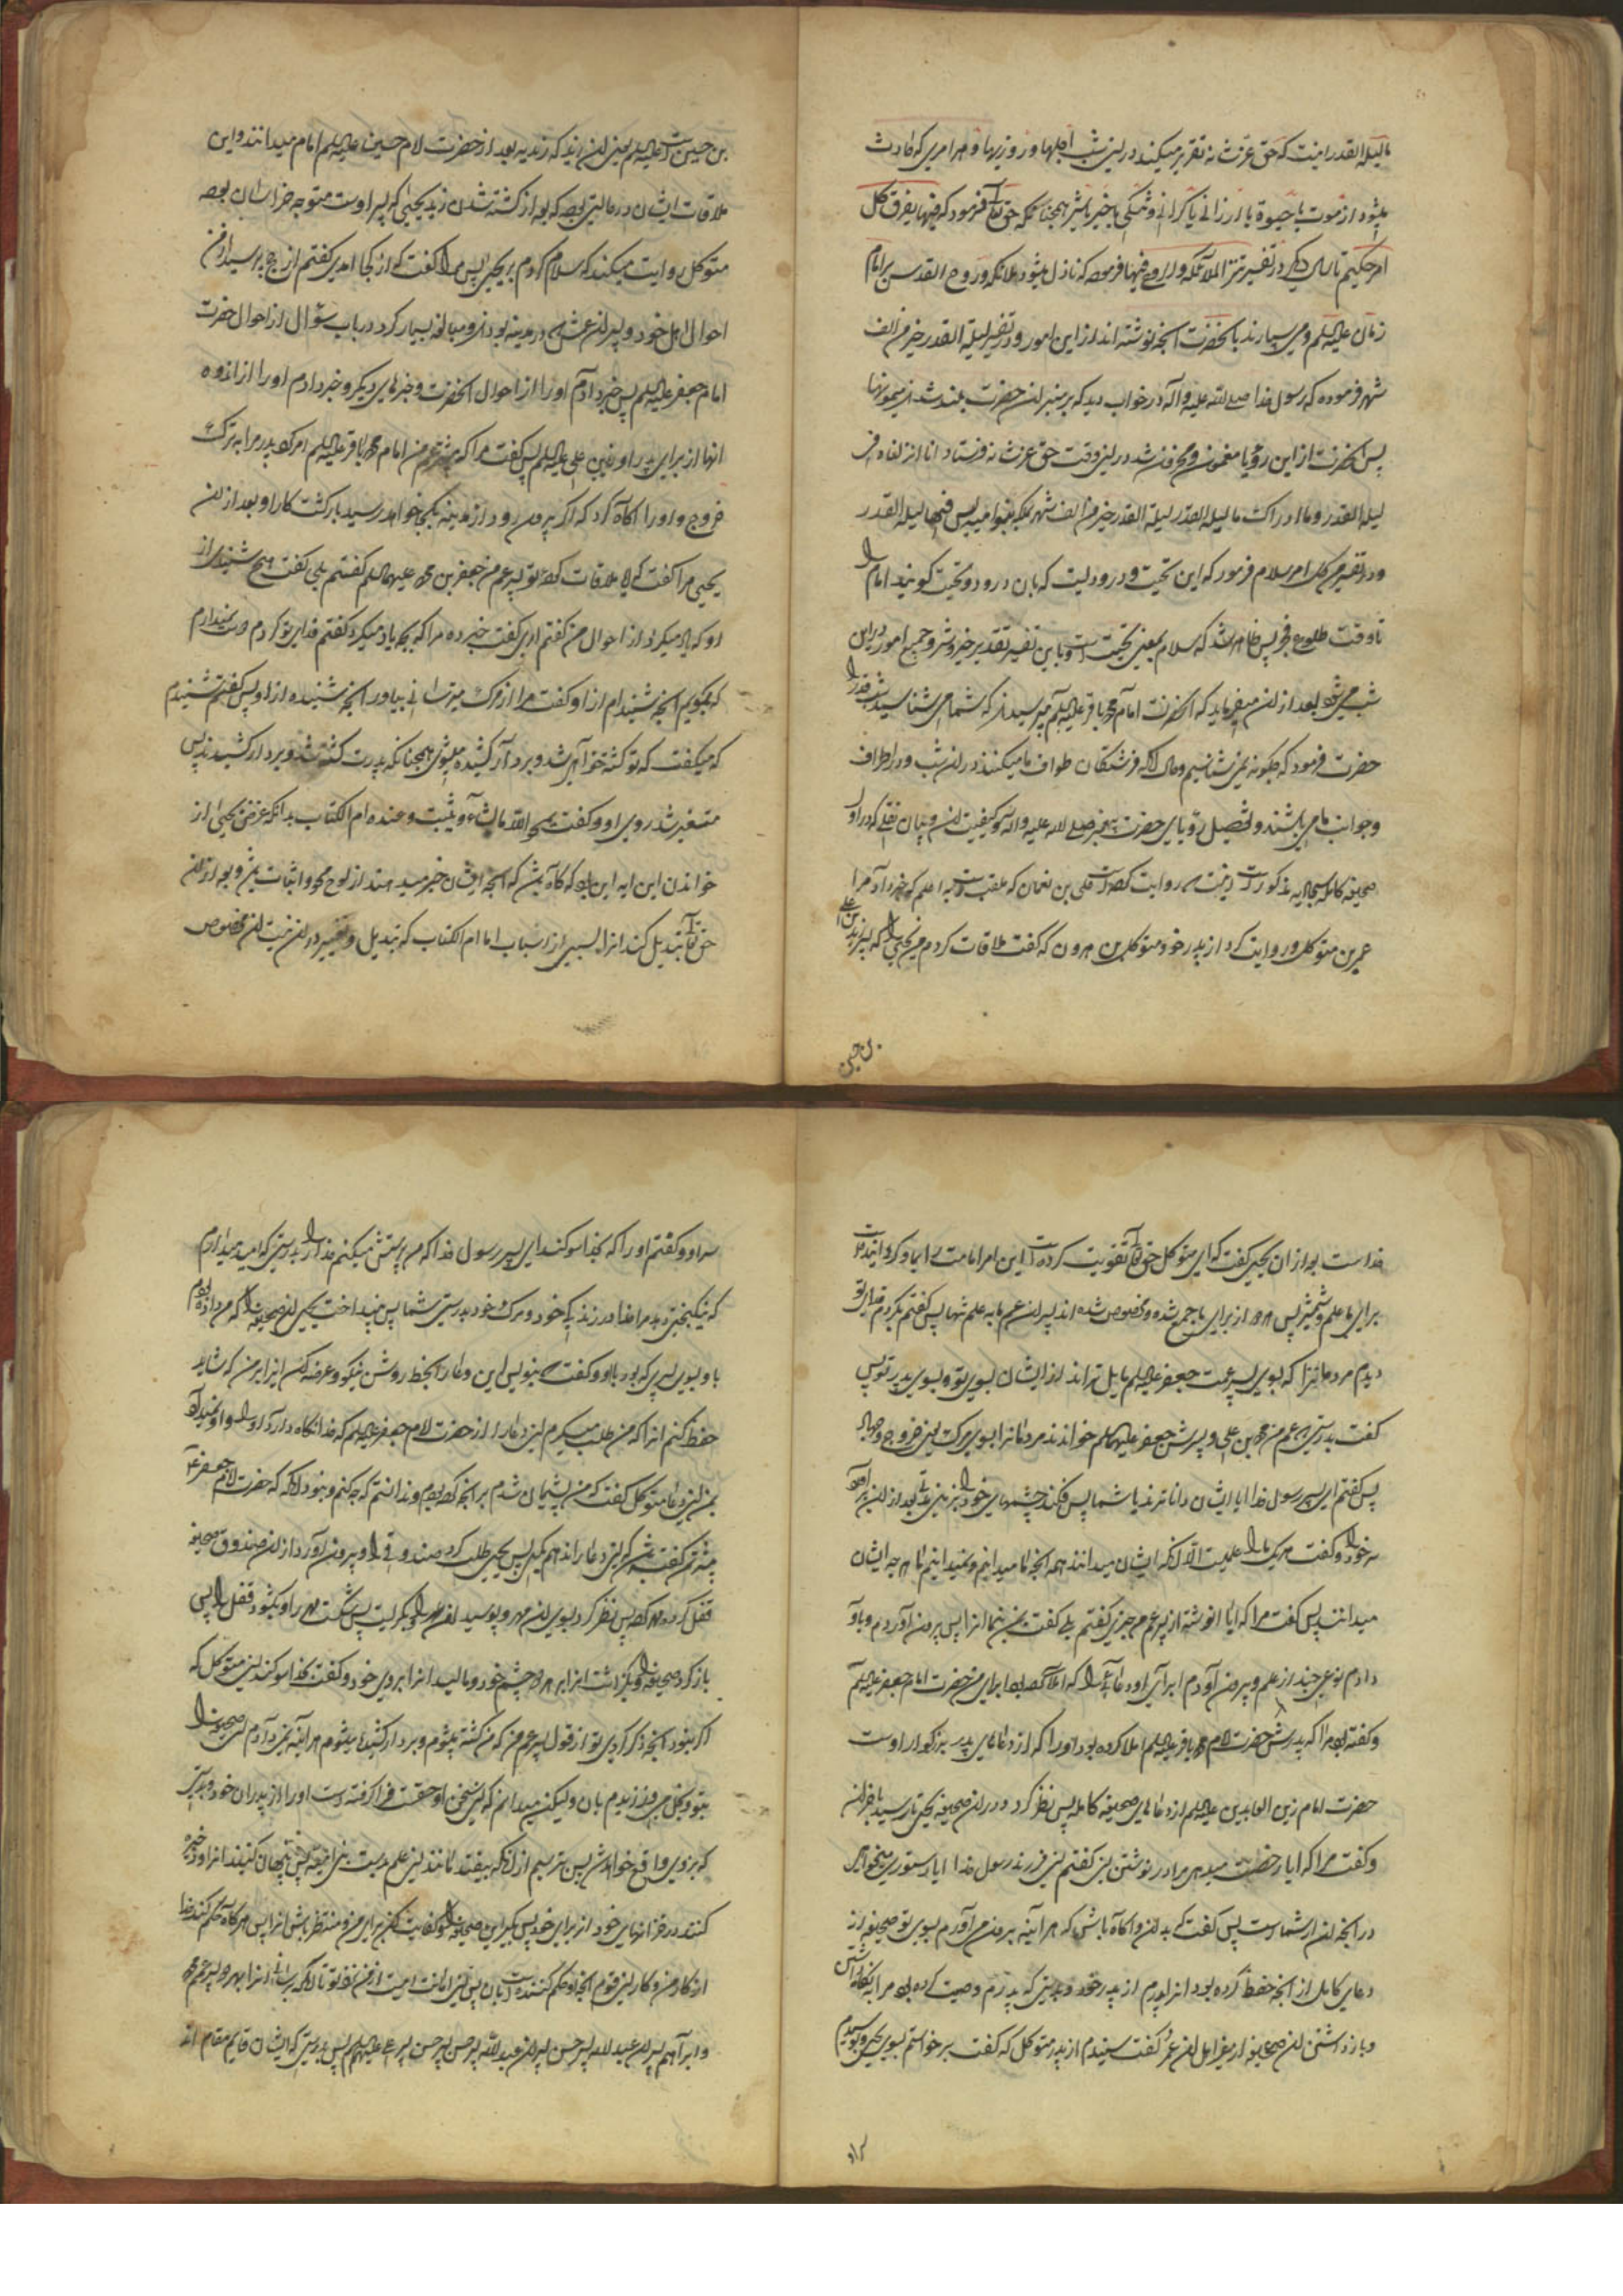 ما لیلة القدر اینست که حق عزت نه تقریر میکند در این شب اجلها و روزیها و هر امری که حادث
میشود از موت یا حیوة یا ارزانی یا کرانی و تنگی یا خیر یا شر همچنانکه حق تعا فرمود که فیها یفرق کل
امر حکیم تا دیگر در تفسیر تنزل الملائکه والروح فیها فرموده که نازل میشود ملائکه و روح القدس بر امام
زمان علیه السلم و می سپارند بآنحضرت آنچه نوشته اند از این امور و در تفسیر لیلة القدر خیر من الف
شهر فرموده که رسول خدا صلی الله علیه و آله در خواب دید که بر منبر آن حضرت بلند شدند میمونها
پس آنحضرت از این رؤیا مغموم و محزون شد در این وقت حق عزت نه فرستاد انا انزلناه فی
لیلة القدر و ما ادراک ما لیلة القدر لیلة القدر خیر من الف شهر پس فیها لیلة القدر
و در تفسیر من کل امر سلام فرمود که این تحیت و درودیست که بان درود و تحیت کویند امام را
تا وقت طلوع فجر پس ظاهر شد که سلام بمعنی تحیت است و باین تفسیر تقدیر خیر و شر و جمیع امور در این
شب می شود بعد از آن میفرماید که از حضرت امام محمد باقر علیه السلم پرسیدند که شما می شناسید شب قدر را
حضرت فرمود که چکونه نمی شناسیم و حال آنکه فرشتکان طواف ما میکنند در آن شب و در اطراف
و جوانب ما می باشند و تفصیل رؤیای حضرت پیغمبر صلی الله علیه و اله و کیفیت آن و بیان نقلی که در اول
صحیفه کامله سجادیه مذکورست اینست روایت کرده است علی بن نعمان که ملقب است به اعلم که خبر داد مرا
عمیر بن متوکل و روایت کرد از پدر خود متوکل بن هرون که گفت ملاقات کردم من یحیی را که پسر زید بن علی
بن حسین
بن حسین است علیه السلم یعنی آن زید که زیدیه بعد از حضرت امام حسین علیه السلم امام میدانند و این
ملاقات ایشان در حالتی بوده که بعد از کشته شدن زید یحیی که پسر اوست متوجه خراسان بوده
متوکل روایت میکند که سلام کردم بر یحیی پس مرا گفت که از کجا امدی گفتم از حج پرسید از من
احوال اهل خود و پسران عمش که در مدینه بودند و مبالغه بسیار کرد در باب سؤال از احوال حضرت
امام جعفر علیه السلم پس خبر دادم او را از احوال آنحضرت و خبرهای دیگر و خبر دادم او را از اندوه
انها از برای پدر او زید بن علی علیه السلم پس گفت مرا که عم من امام محمد باقر علیه السلم امر کرد پدر مرا به ترک
خروج و او را آکاه کرد که اکر بیرون رود از مدینه بکجا خواهد رسید بازکشت کار او بعد از آن
یحیی مرا گفت که آیا ملاقات کرده تو پسر عم من جعفر بن محمد علیهما السلم گفتم بلی گفت هیچ شنیدی از
او که یاد میکرد از احوال من گفتم آری گفت خبر ده مرا که بچه یاد میکرد گفتم فدای تو کردم دوست نمیدارم
که بگویم آنچه شنیدم از او گفت مرا از مرک میترسانی بیاور آنچه شنیده از او پس گفتم شنیدم
که میگفت که تو کشته خواهی شد و بر دار کشیده میشوی همچنانکه پدرت کشته شد و بر دار کشیدند پس
متغیر شد روی او و گفت یمحو الله ما یشاء و یثبت و عنده ام الکتاب بدانکه غرض یحیی از
خواندن این ایه این بود که کاه باشد که آنچه ایشان خبر میدهند از لوح محو و اثبات باشد و بعد از آن
حق تعا تبدیل کند انرا بسببی از اسباب اما ام الکتاب که تبدیل و تغییر در آن نیست آن مخصوص
خداست بعد از ان یحیی گفت که ای متوکل حق تعا تقویت کرده است این امر امامت را بما و کردانیده است
برای ما علم و شمشیر پس هر دو از برای ما جمع شده و مخصوص شده اند پسران عم ما به علم تنها پس گفتم بکردم فدای تو
دیدم مردمانرا که بسوی پسر عمت جعفر علیه السلم مایل تراند از ایشان بسوی تو و بسوی پدر تو پس
گفت بدرستی که عم من محمد بن علی و پسرش جعفر علیهما السلم خواندند مردمانرا بسوی حیات
پس گفتم ای پسر رسول خدا ایا ایشان داناترند یا شما پس فکند چشمهای خود را بزمین مدتی بعد از آن برداشت
سر خود را و گفت هر یک ما را علمیست الا انکه ایشان میدانند همه آنچه ما میدانیم و نمیدانیم ما هر چه ایشان
میدانند پس گفت مرا که ایا نوشته از پسر عم من چیزی گفتم بلی گفت بمن بنما انرا پس بیرون آوردم و باو
دادم نوعی چند از علم و بیرون آوردم از برای او دعائی را که املا کرده بود برای من حضرت امام جعفر علیه السلم
و گفته بود مرا که پدرش حضرت امام محمد باقر علیه السلم املا کرده بود او را که از دعاهای پدر بزرکوار اوست
حضرت امام زین العابدین علیه السلم از دعاهای صحیفه کامله پس نظر کرد در آن صحیفه یحیی تا رسید باخر آن
و گفت مرا که ایا رخصت میدهی مرا در نوشتن این گفتم ای فرزند رسول خدا ایا دستوری میخواهی
در آنچه آن از شماست پس گفت که بدان و آکاه باش که هر آینه بیرون می آورم بسوی تو صحیفه از
دعای کامل از آنچه حفظ کرده بود انرا پدرم از پدر خود و بدرستی که پدرم وصیت کرده بود مرا به نکاه داشتن
و بازداشتن آن صحیفه از غیر اهل آن عمیر گفت شنیدم از پدر متوکل که گفت برخواستم بسوی یحیی و بوسیدم
سر او
سر او و گفتم او را که بخدا سوکند ای پسر رسول خدا که من پرستش میکنم خدا را بدرستی که امید میدارم
که نیکبختی دهد مرا خدا در زندگی خود و مرک خود بدوستی شما پس انداخت یحیی آن صحیفه را که من داده بودم
باو بسوی پسری که بود با او و گفت که بنویس این دعا را بخط روشن نیکو و عرضه کن انرا بر من که شاید
حفظ کنم انرا که من طلب میکردم این دعا را از حضرت امام جعفر علیه السلم که خدا نکاه دارد او را و او نمیداد
بمن این دعا متوکل گفت که من پشیمان شدم بر آنچه کرده بودم و ندانستم که چه کنم و نبود انکه حضرت امام جعفر ع
پیشتر گفته باشد که این دعا را ندهم بکسی پس یحیی طلب کرد صندوقی را و بیرون آورد از آن صندوق صحیفه
قفل کرده مهر کرده پس نظر کرد بسوی آن مهر و بوسید آن مهر را و بگریست پس شکست مهر را و بکشود قفل را پس
باز کرد صحیفه را و بگذاشت انرا بر هر دو چشم خود و مالید انرا بروی خود و گفت بخدا سوکند ای متوکل که
اکر نبود آنچه ذکر کردی تو از قول پسر عم من که من کشته میشوم و بر دار کشیده میشوم هر اینه نمیدادم این صحیفه را
بتو و بخل می ورزیدم بان ولیکن میدانم که این سخن او حقست فرا کرفته است او را از پدران خود و بدرستی
که بزودی واقع خواهد شد پس ترسیدم از آنکه بیفتد مانند این علم بدست بنی امیه پس پنهان کنند انرا و ذخیره
کنند در خزانهای خود از برای خود پس بگیر این صحیفه را و کفایت کن برای من و منتظر باش انرا پس هرکاه حکم کند خدا
از کار من و کار این قوم آنچه او حکم کننده است بان پس این امانت است از من نزد تو تا آنکه برسانی انرا بهر دو پسر عم من محمد
و ابراهیم پسران عبد الله پسر حسن پسر حسن پسر علی علیهم السلم پس بدرستی که ایشان قایم مقام اند